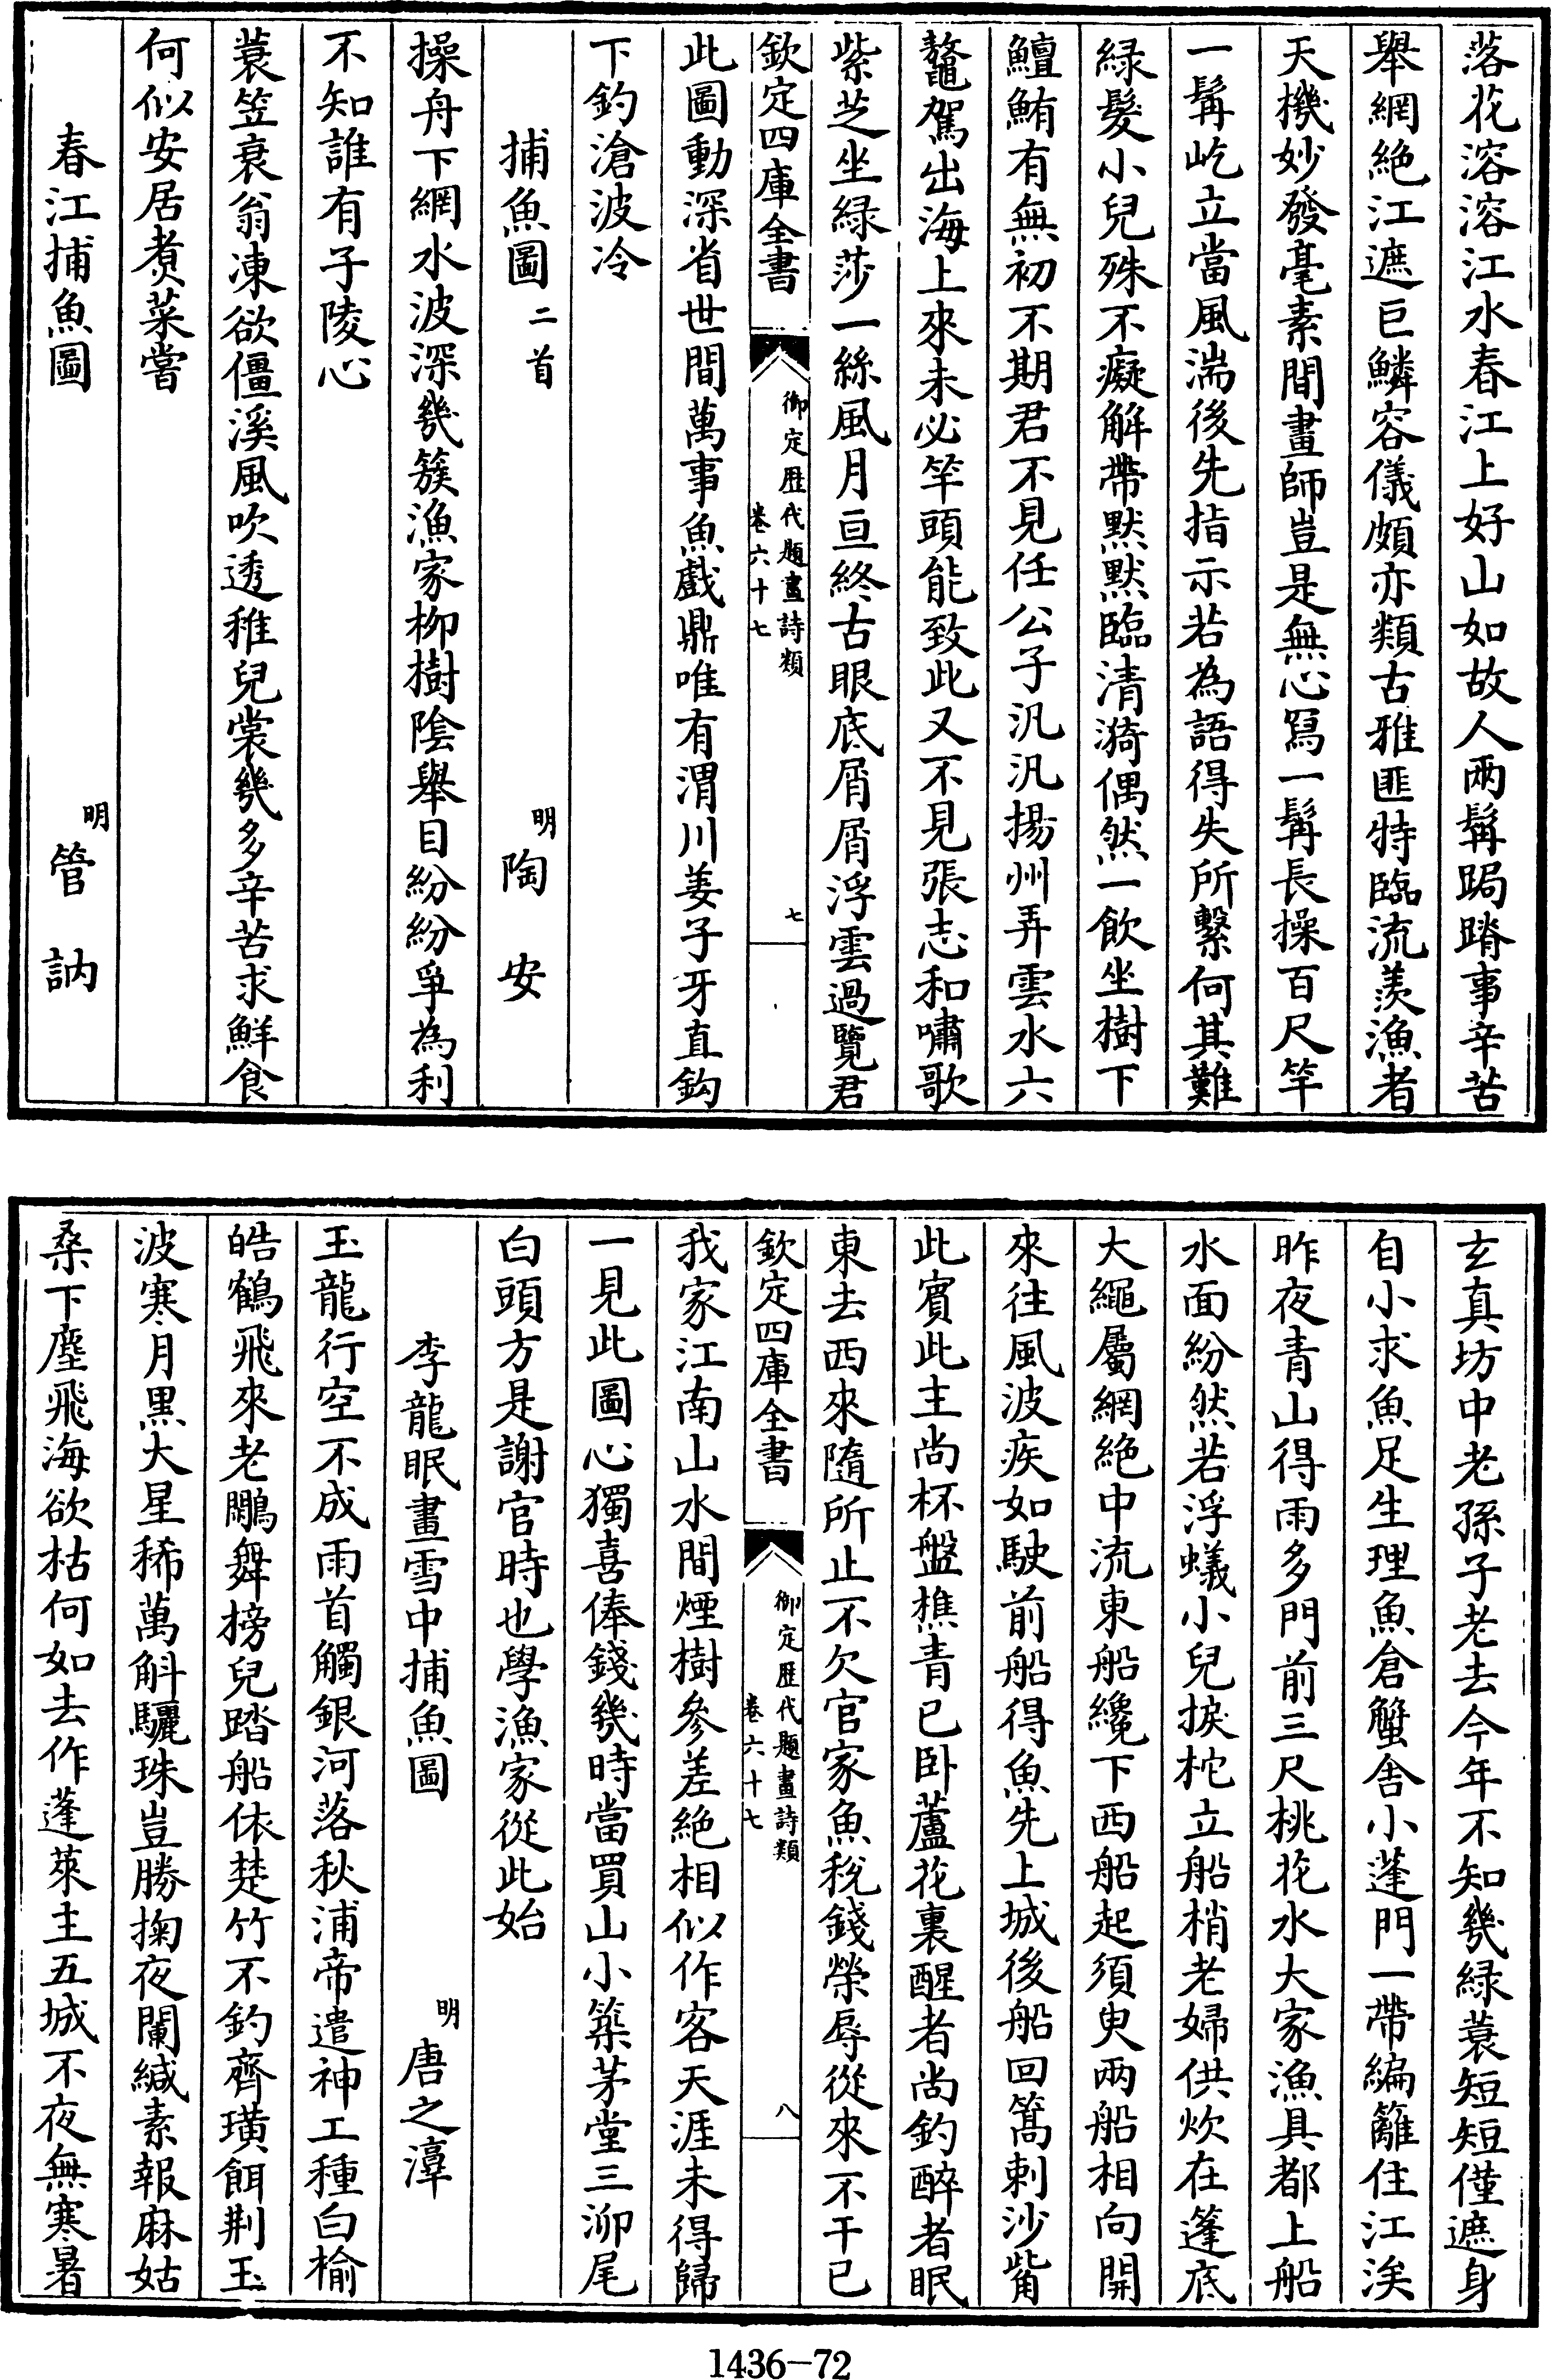 落花溶溶江水春江上好山如故人兩髯跼蹐事辛苦
舉網絶江遮巨鱗容儀頗亦類古雅匪特臨流羨漁者
天機妙發毫素間畫師豈是無心寫一髯長操百尺竿
一髯屹立當風湍後先指示若為語得失所繫何其難
緑髮小兒殊不癡解帶默默臨清漪偶然一飲坐樹下
鱣鮪有無初不期君不見任公子汎汎揚州弄雲水六
鼇駕出海上來未必竿頭能致此又不見張志和嘯歌
紫芝坐緑莎一絲風月亘終古眼底屑屑浮雲過覽君
欽定四庫全書
御定歴代題畫詩類
卷六十七
七
此圖動深省世間萬事魚戲鼎唯有渭川姜子牙直鈎
下釣滄波冷
捕魚圖二首 明陶安
操舟下網水波深幾簇漁家柳樹陰舉目紛紛爭為利
不知誰有子陵心
蓑笠衰翁凍欲僵溪風吹透稚兒裳幾多辛苦求鮮食
何似安居煮菜嘗
春江捕魚圖 明管訥
玄真坊中老孫子老去今年不知幾緑蓑短短僅遮身
自小求魚足生理魚倉蟹舍小蓬門一帶編籬住江涘
昨夜青山得雨多門前三尺桃花水大家漁具都上船
水面紛然若浮蟻小兒捩柁立船梢老婦供炊在篷底
大繩屬網絶中流東船纔下西船起須臾兩船相向開
來往風波疾如駛前船得魚先上城後船回篙刺沙觜
此賓此主尚杯盤樵青已卧蘆花裏醒者尚釣醉者眠
東去西來隨所止不欠官家魚税錢榮辱從來不干已
欽定四庫全書
御定歴代題畫詩類
卷六十七
八
我家江南山水間煙樹參差絶相似作客天涯未得歸
一見此圖心獨喜俸錢幾時當買山小築茅堂三泖尾
白頭方是謝官時也學漁家從此始
李龍眠畫雪中捕魚圖 明唐之淳
玉龍行空不成雨首觸銀河落秋浦帝遣神工種白榆
皓鶴飛來老鵰舞榜兒踏船依楚竹不釣齊璜餌荆玉
波寒月黒大星稀萬斛驪珠豈勝掬夜闌緘素報麻姑
桑下塵飛海欲枯何如去作蓬萊主五城不夜無寒暑
1436—72